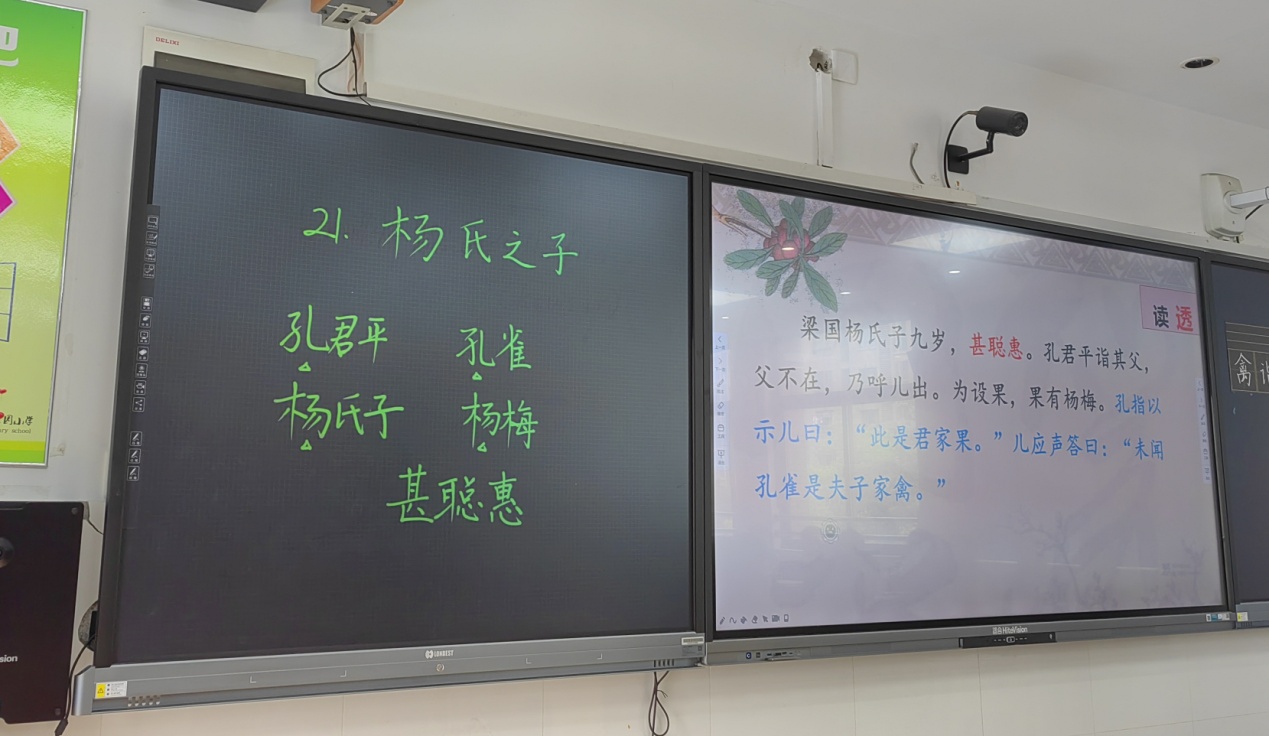 DELIXI
21. 杨氏之子
孔君平 孔雀
杨氏子 杨梅
甚聪惠
LONBEST
读透
梁国杨氏子九岁，甚聪惠。孔君平诣其父，
父不在，乃呼儿出。为设果，果有杨梅。孔指以
示儿曰：“此是君家果。”儿应声答曰：“未闻
孔雀是夫子家禽。”
HiteVision
禽
sion